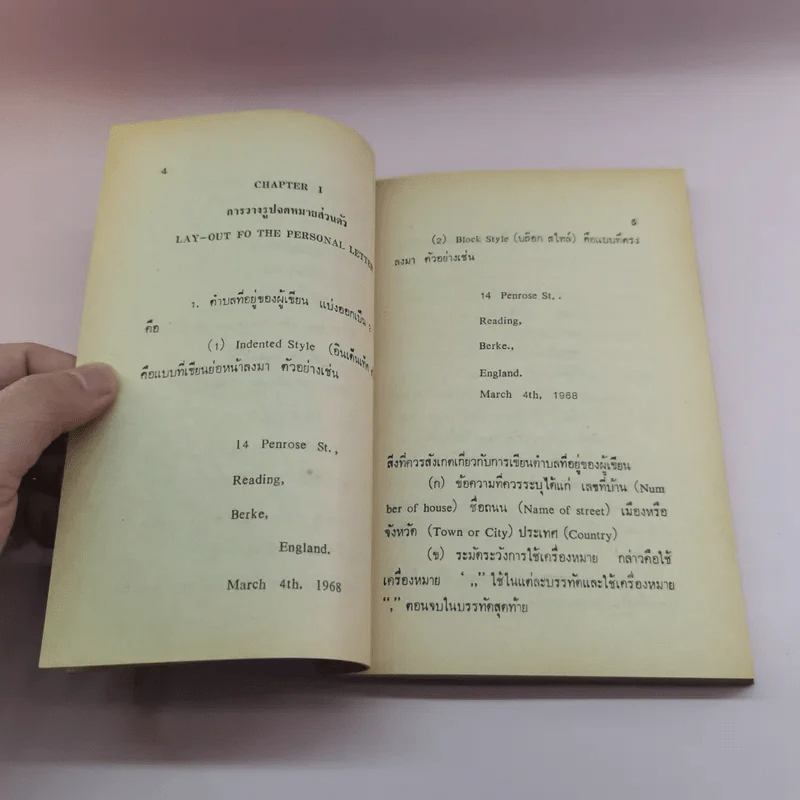 4
CHAPTER I
การวางรูปจดหมายส่วนตัว
LAY-OUT FO THE PERSONAL LETTER
1. ตำบลที่อยู่ของผู้เขียน แบ่งออกเป็น
คือ
(1) Indented Style (อินเด็นเท็ด
คือแบบที่เขียนย่อหน้าลงมา ตัวอย่างเช่น
14 Penrose St.,
Reading,
Berke,
England.
March 4th, 1968
5
(2) Block Style (บล๊อก สไทล์) คือแบบที่ตรง
ลงมา ตัวอย่างเช่น
14 Penrose St. .
Reading,
Berke.,
England.
March 4th, 1968
สิ่งที่ควรสังเกตเกี่ยวกับการเขียนตำบลที่อยู่ของผู้เขียน
(ก) ข้อความที่ควรระบุได้แก่ เลขที่บ้าน (Num
ber of house) ชื่อถนน (Name of street) เมืองหรือ
จังหวัด (Town or City) ประเทศ (Country)
(ข) ระมัดระวังการใช้เครื่องหมาย กล่าวคือใช้
เครื่องหมาย ‘ ,,” ใช้ในแต่ละบรรทัดและใช้เครื่องหมาย
“.” ตอนจบในบรรทัดสุดท้าย